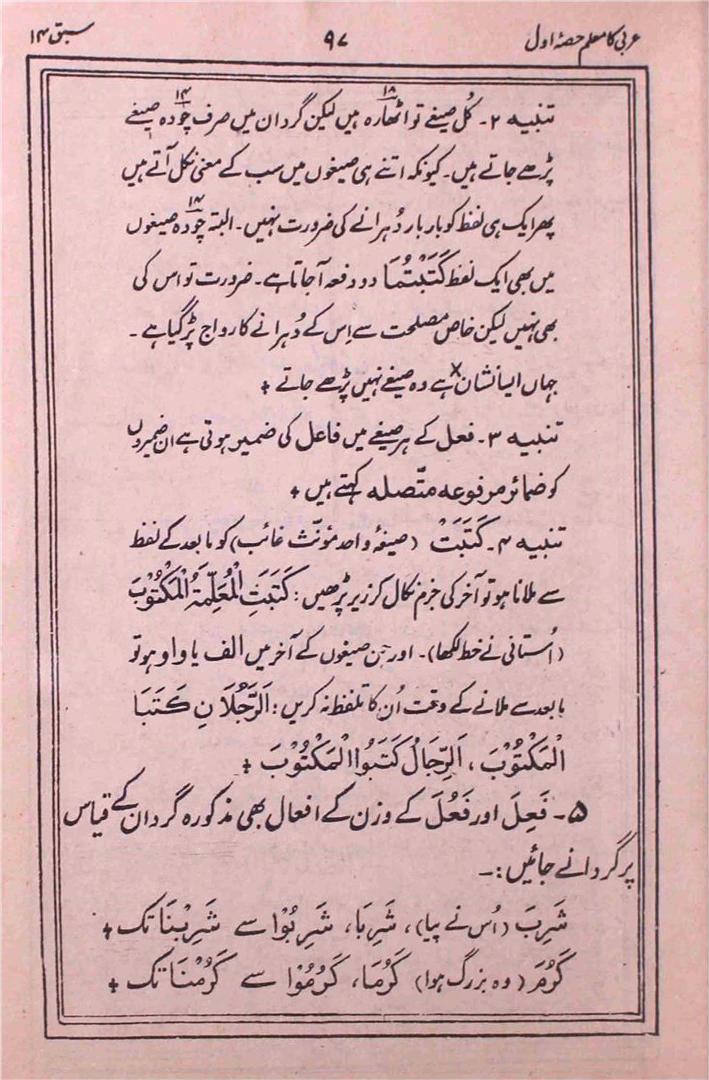 عربی کا معلم حصۂ اول ۹۷ سبق ۱۴
تنبیہ ۲۔ کُل صیغے تو اٹھارہ ۱۸ ہیں لیکن گردان میں صرف چودہ ۱۴ صیغے
پڑھے جاتے ہیں۔ کیونکہ اتنے ہی صیغوں میں سب کے معنی نکل آتے ہیں
پھر ایک ہی لفظ کو بار بار دُہرانے کی ضرورت نہیں۔ البتہ چودہ ۱۴ صیغوں
میں بھی ایک لفظ کَتَبْتُمَا دو دفعہ آجاتا ہے۔ ضرورت تو اس کی
بھی نہیں لیکن خاص مصلحت سے اِس کے دُہرانے کا رواج پڑگیا ہے۔
جہاں ایسا نشان × ہے وہ صیغے نہیں پڑھے جاتے +
تنبیہ ۳۔ فعل کے ہر صیغے میں فاعل کی ضمیر ہوتی ہے ان ضمیروں
کو ضمائر مرفوعہ متّصلہ کہتے ہیں +
تنبیہ ۴۔ کَتَبَتْ (صیغۂ واحد مؤنّث غائب) کو مابعد کے لفظ
سے ملانا ہو تو آخر کی جزم نکال کر زیر پڑھیں: کَتَبَتِ الْمُعَلِّمَۃُ الْمَکْتُوْبَ
(اُستانی نے خط لکھا)۔ اور جن صیغوں کے آخر میں الف یا واو ہو تو
مابعد سے ملانے کے وقت اُن کا تلفظ نہ کریں: اَلرَّجُلَانِ کَتَبَا
الْمَکْتُوْبَ، اَلرِّجَالُ کَتَبُوا الْمَکْتُوْبَ +
۵۔ فَعِلَ اور فَعُلَ کے وزن کے افعال بھی مذکورہ گردان کے قیاس
پر گردانے جائیں:۔
شَرِبَ (اُس نے پیا)، شَرِبَا، شَرِبُوْا سے شَرِبْنَا تک +
کَرُمَ (وہ بزرگ ہوا) کَرُمَا، کَرُمُوْا سے کَرُمْنَا تک +